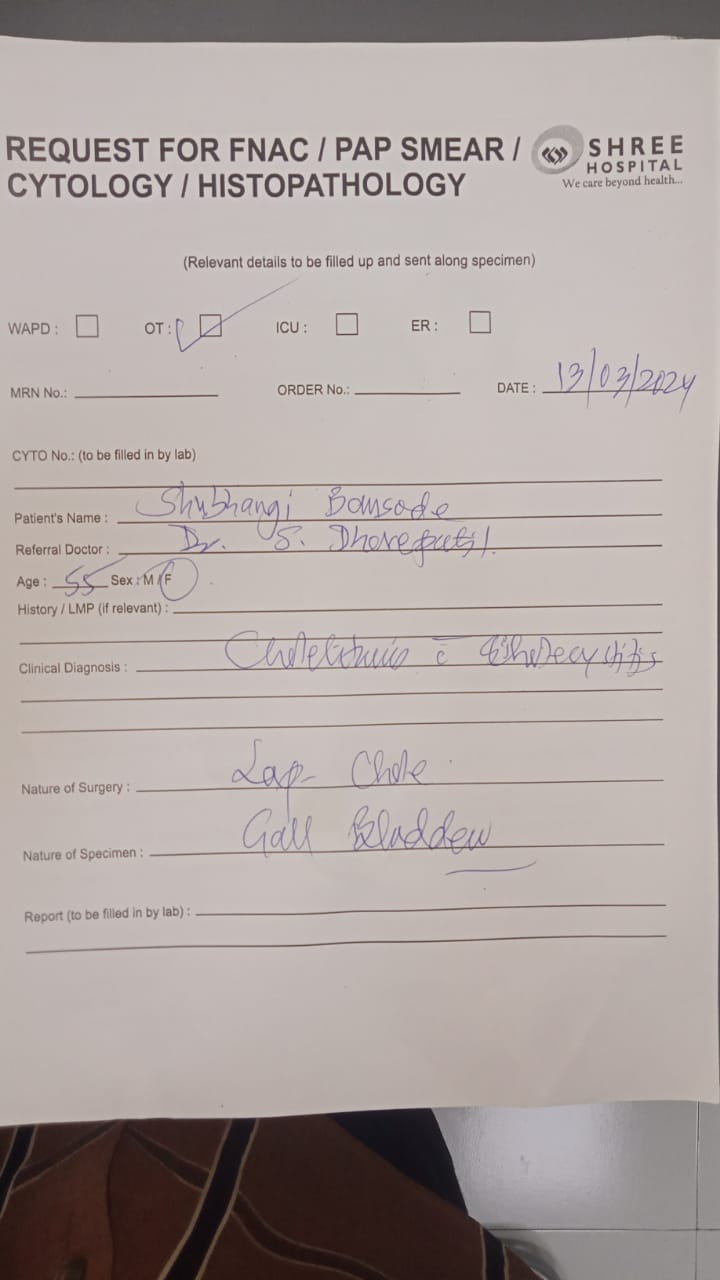 REQUEST FOR FNAC / PAP SMEAR /
CYTOLOGY / HISTOPATHOLOGY
SHREE
HOSPITAL
We care beyond health...
(Relevant details to be filled up and sent along specimen)
WAPD : OT : ICU : ER :
MRN No.: ORDER No.: DATE : 13/03/2024
CYTO No.: (to be filled in by lab)
Patient's Name : Shubhangi Bansode
Referral Doctor : Dr. S. Dhorepatil.
Age : 55 Sex : M / F
History / LMP (if relevant) :
Clinical Diagnosis : c̄
Nature of Surgery : Lap- Chole
Nature of Specimen : Gall Bladder
Report (to be filled in by lab) :